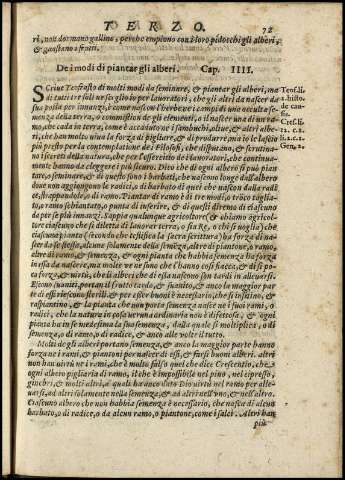 TERZO. 72
ri, non dormano galline, perche empiono con i loro pidocchi gli alberi,
& guastano i frutti.
De i modi di piantar gli alberi. Cap. IIII.
SCrive Teofrasto di molti modi da seminare, & piantar gli alberi, ma
di tutti tre soli ne so assegno io per lavoratori, che gli altri da nascer da
sua posta per innanzi, è come nasce l'herbe ve i campi di una occulta se-
menza della terra, o commistion de gli elementi, o il nascer di una ra-
mo, che cada in terra, come è accaduto ne i sambuchi, olive, & altri albe-
ri, che han molta una la forza di pigliare, & di produrre, ma io le lascio
più presto per la contemplatione de i Filosofi, che disputano, & scrutina-
no i secreti della natura, che per l'essercitio de i lavoratori, che continua-
mente hanno da eleggere i più sicuro. Dico che di ogni albero si può pian-
tare, o seminare, & di questo tre sono i barbati, che nascono lunge dall'albero
dove non aggiongono le radici, o di barbato di quei che nascon dalla radi-
ce, strappandolo, o di ramo. Piantar di ramo è di tre modi, o troco taglia-
to, o ramo schiantato, o punta di inserire, & di questi diremo di ciascuno
da per se più innanzi. Sappia qualunque agricoltore (& chiamo agricol-
tore ciascuno che si diletta di lavorar terra, o sia Re, o chi si voglia) che
ciascuna pianta (secondo che testifica la sacra scrittura) ha forza di na-
scer da se stessa, alcune solamente della semenza, altre di piantone, o ramo,
altre di ramo, & semenza, & ogni pianta che habbia semenza ha forza
in essa da nascere, ma molte ve ne sono che l'hanno cosi fiacca, & di si po-
ca forza, & virtù, che li alberi che di essa nascono son tardi in allevarsi.
E come si avviti, portan il frutto tardo, & svanito, & anco la maggior par
te di essi riescono sterili, & per esser buoni è necessario, che si inestino, &
trasplantino, & la pianta che non porta semenza nasce ne i suoi rami, o
radici, che la natura in cosa veruna ordinaria non è difettosa, & ogni
pianta ha in se medesima la sua semenza, dalla quale si moltiplica, o di
semenza, o di ramo, o di radice, & anco alle volte il tutto.
Molti de gli alberi portano semenza, & anco la maggior parte hanno
forza ne i rami, & piantoni per nascer di essi, & farsi buoni alberi. altri
non han virtù ne i rami, che è molto falso quel che dice Crescentio, che
ogni albero pigliaria di ramo, il che è impossibile nel pino, nel cipresso,
ginebri, & molti altri, a' quali ha n'ha dato Dio virtù nel ramo per alle-
narsi, ad altri solamente nella semenza, & ad altri nell'uno, & nell'altro.
Ciascuno albero che non habbia semenza è necessario, che nasca di alcun
barbato, o di radice, o da alcun ramo, o piantone, come i salci. Altri han
più
Teof. li.
2. histo.
de cau-
sis.
Cres. li.
12. c. 2.
11. c. 2.
Gen. 2.